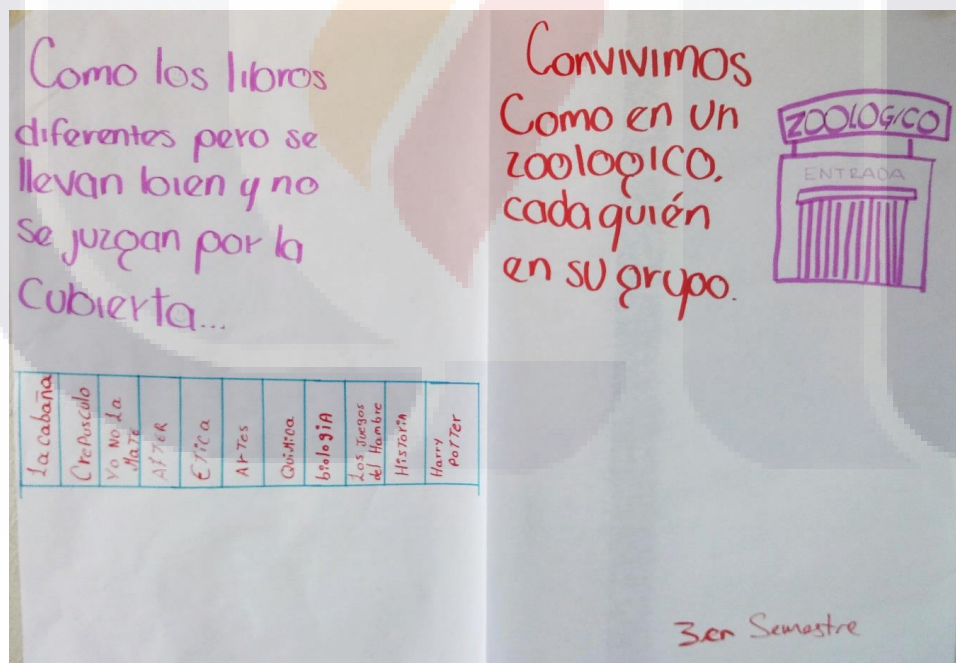 Como los libros
diferentes pero se
llevan bien y no
se juzgan por la
Cubierta...
La Cabaña
Crepusculo
Yo No La
Mate
AfTER
ETica
ArTes
QuiMica
biologiA
Los Juegos
del Hambre
HisToriA
Harry
PoTTer
Convivimos
Como en un
zoologico,
cada quién
en su grupo.
ZOOLOGICO
ENTRADA
3er Semestre